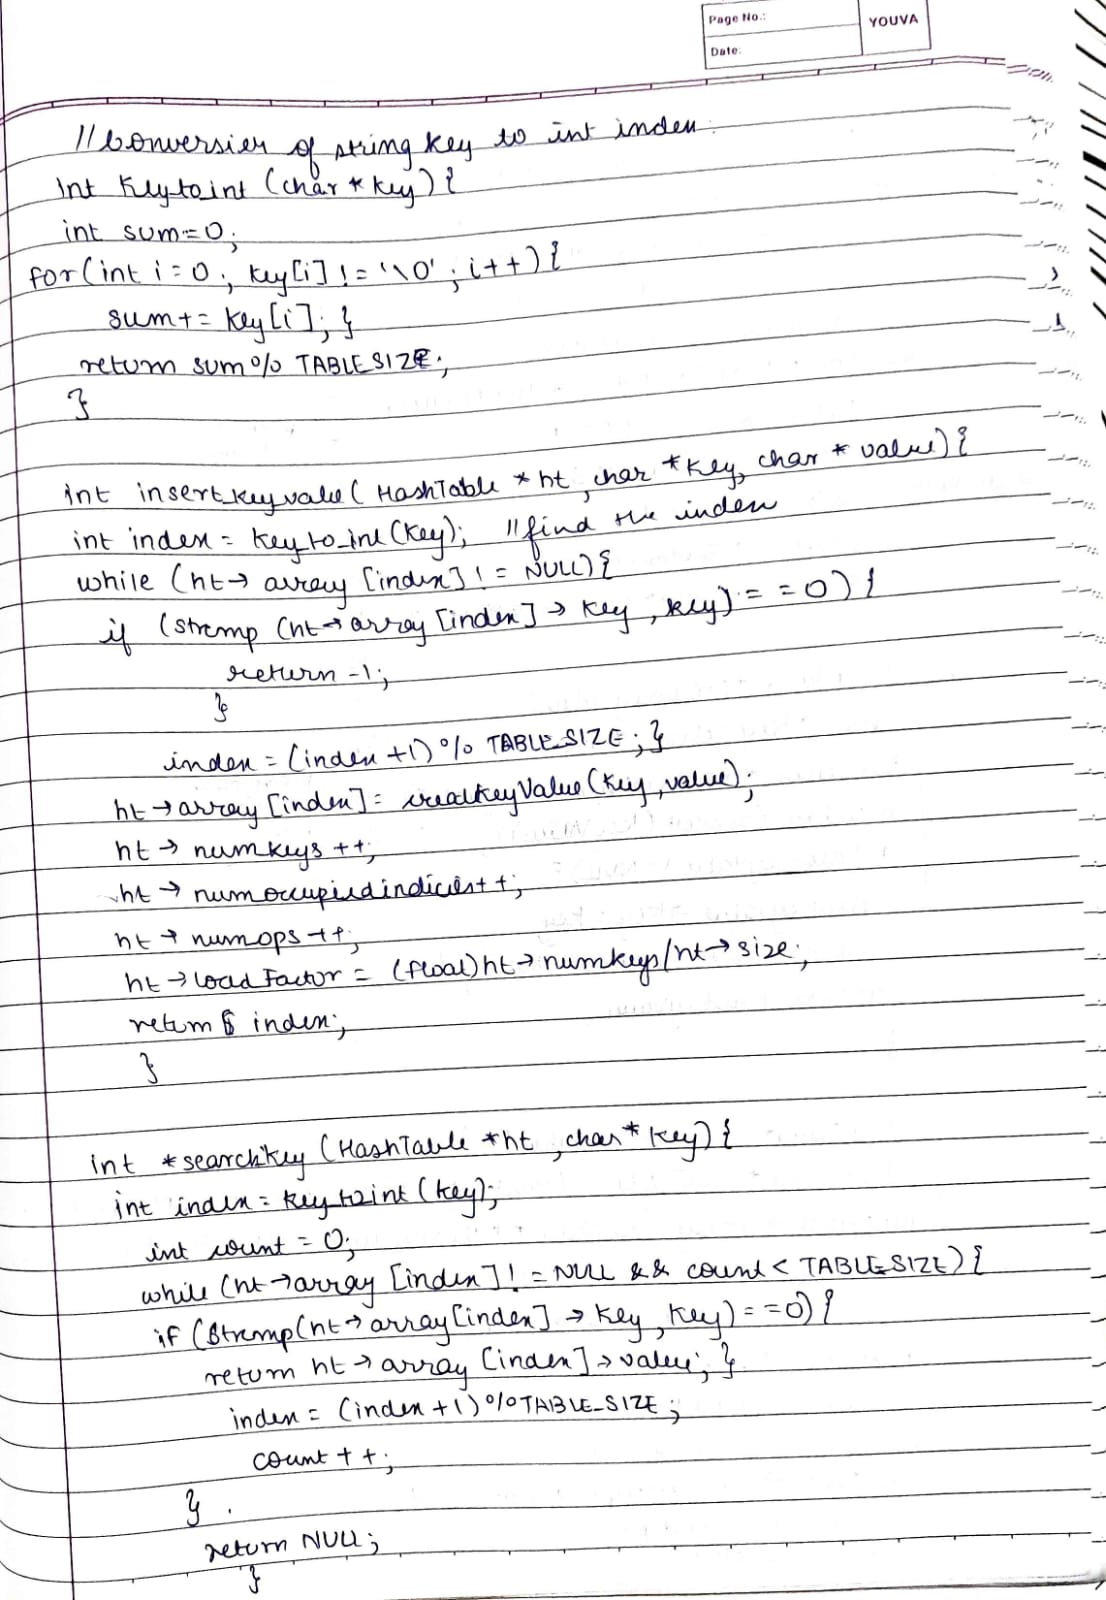 Page No.:
YOUVA
Date:
// Conversion of string key to int index.
int Key_to_int (char * key) {
int sum=0;
for(int i=0; key[i] != '\0'; i++) {
sum+= key[i]; }
return sum% TABLESIZE;
}
int insertkeyvalue ( HashTable * ht, char *key, char * value) {
int index = key_to_int (key); //find the index
while (ht→ array [index] != NULL) {
if (strcmp (ht→array [index] → key, key) == 0) {
return -1;
}
index = (index +1) % TABLE_SIZE; }
ht → array [index] = createkeyValue (key, value);
ht → numkeys ++;
ht → numoccupiedindicies++;
ht → numops ++;
ht → load Factor = (float) ht→ numkeys/ht→ size;
return index;
}
int *searchkey (HashTable *ht, char* key) {
int index = key_to_int (key);
int count = 0;
while (ht →array [index] != NULL && count < TABLE_SIZE) {
if (strcmp(ht→ array[index] → key, key) == 0) {
return ht → array [index] → value; }
index = (index +1) % TABLE_SIZE;
count ++;
}
return NULL;
}